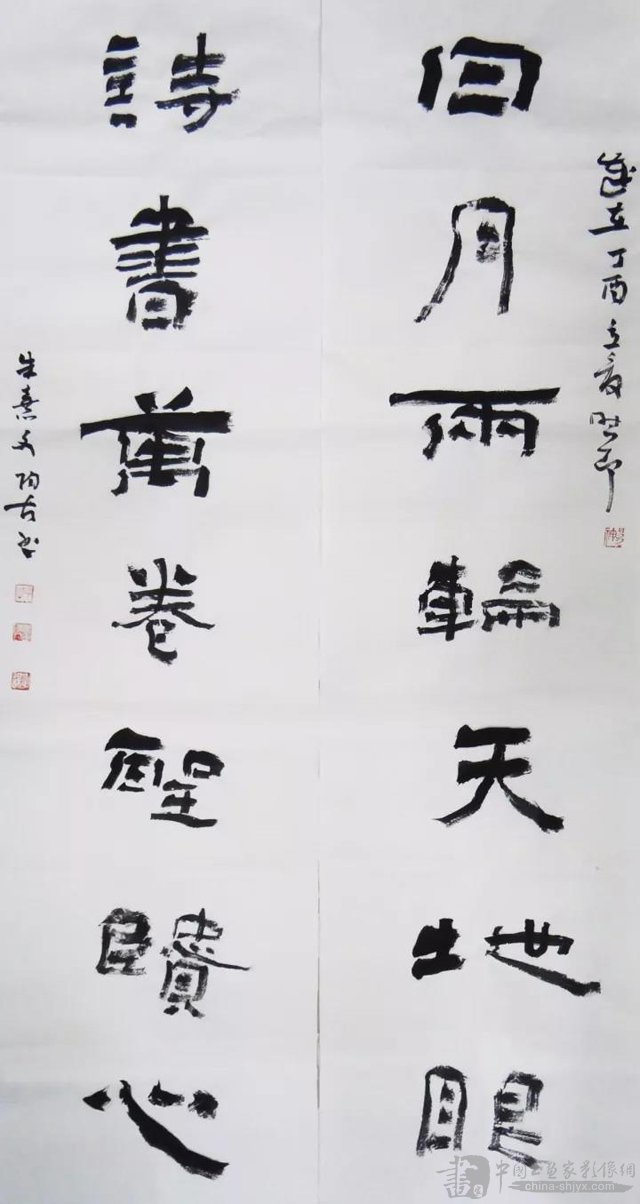 歲在丁酉立夏時節
日月兩輪天地眼
詩書萬卷聖賢心
朱熹文
中國书画家影像網
china-shjyx.com